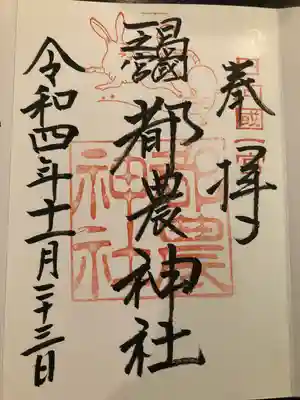 奉拝
日向國
一之宮
都農神社
都農
神社
令和四年十一月二十三日